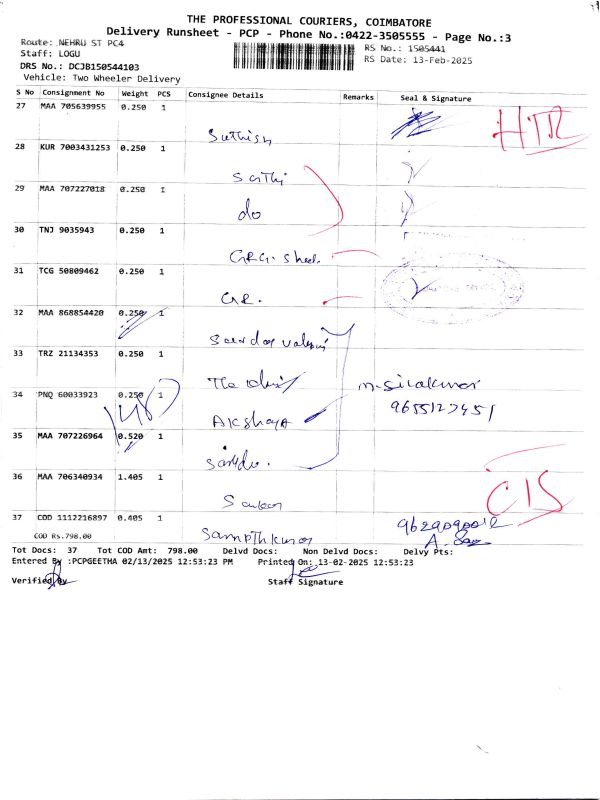 THE PROFESSIONAL COURIERS, COIMBATORE
Delivery Runsheet - PCP - Phone No.:0422-3505555 - Page No.:3
Route: NEHRU ST PC4
RS No.: 1505441
Staff: LOGU
RS Date: 13-Feb-2025
DRS No.: DCJB150544103
Vehicle: Two Wheeler Delivery
S No Consignment No Weight PCS Consignee Details Remarks Seal & Signature
27 MAA 705639955 0.250 1
Suthish
HTR
28 KUR 7003431253 0.250 1
Sathi
29 MAA 707227018 0.250 1
do
30 TNJ 9035943 0.250 1
31 TCG 50809462 0.250 1
GR.
32 MAA 868854420 0.250 1
33 TRZ 21134353 0.250 1
34 PNQ 60033923 0.250 1
m. Sivakumar
9655127451
Akshaya
35 MAA 707226964 0.520 1
36 MAA 706340934 1.405 1
CIS
37 COD 1112216897 0.405 1
Sampthkumar
COD Rs.798.00
Tot Docs: 37 Tot COD Amt: 798.00 Delvd Docs: Non Delvd Docs: Delvy Pts:
Entered By :PCPGEETHA 02/13/2025 12:53:23 PM Printed On: 13-02-2025 12:53:23
Verified By Staff Signature